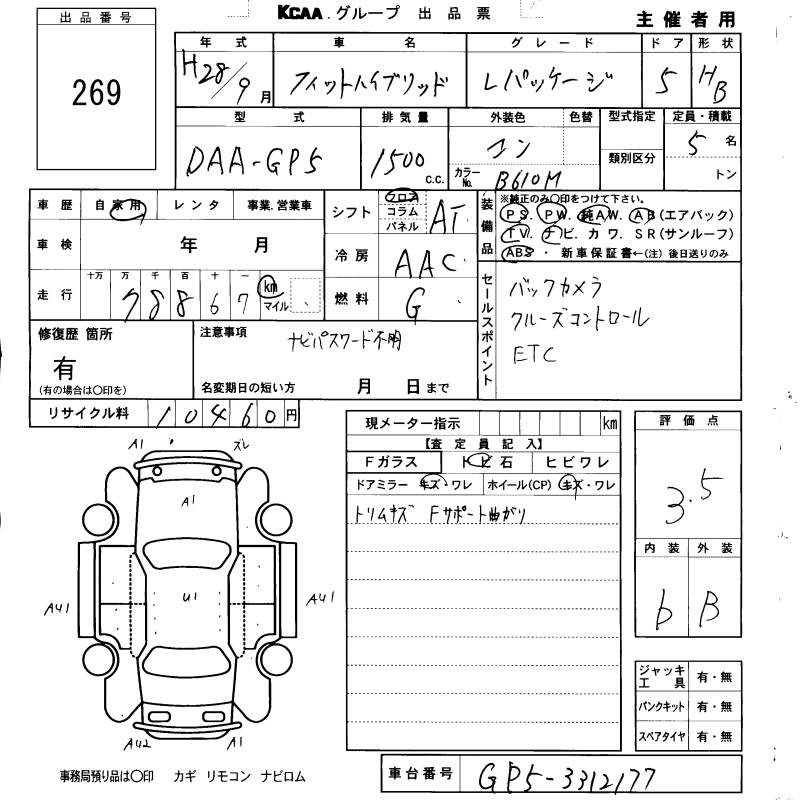 KCAA.グループ 出品票
主催者用
出品番号
269
年式 車名 グレード ドア 形状
H28/9月 フィットハイブリッド Lパッケージ 5 HB
型式 排気量 外装色 色替 型式指定 定員・積載
DAA-GP5 1500 c.c. コン カラーNo. B610M 類別区分 5名
トン
車歴 自家用 レンタ 事業.営業車
車検 年 月
走行 十万 万 千 百 十 一
78867 km マイル
シフト フロア コラム パネル AT
冷房 AAC
燃料 G
装備品 ※純正のみ〇印をつけて下さい。
PS. PW. 純AW. AB(エアバック)
TV. ナビ. カワ. SR(サンルーフ)
ABS ・ 新車保証書←(注) 後日送りのみ
セールスポイント
バックカメラ
クルーズコントロール
ETC
修復歴 箇所
有
(有の場合は〇印を)
注意事項
ナビパスワード不明
名変期日の短い方 月 日まで
リサイクル料 10460円
現メーター指示 km
【査定員記入】
Fガラス トビ石 ヒビワレ
ドアミラー キズ・ワレ ホイール(CP) キズ・ワレ
トリムキズ Fサポート曲がり
評価点
3.5
内装 外装
b B
A1 ズレ
A1
U1
AU1 AU1
AU2 A1
ジャッキ工具 有・無
パンクキット 有・無
スペアタイヤ 有・無
事務局預り品は〇印 カギ リモコン ナビロム
車台番号 GP5-3312177